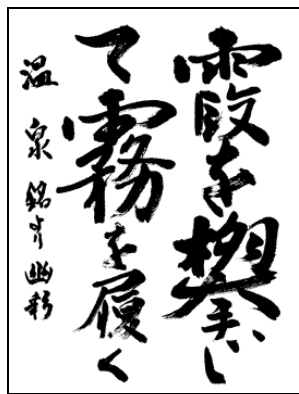 霞を攀じ
て霧を履く
温泉銘より 幽彩